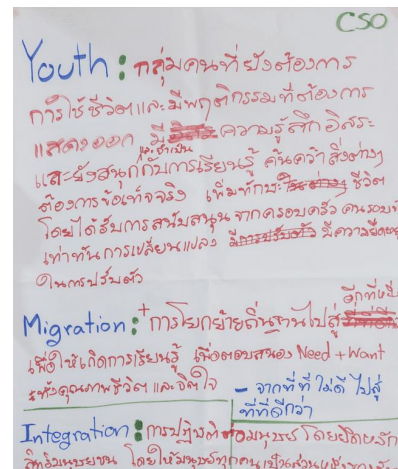 CSO
Youth : กลุ่มคนที่ยังต้องการ
การใช้ชีวิตและมีพฤติกรรมที่ต้องการ
แสดงออก มี ความรู้สึกอิสระ
และยังสนุกกับการเรียนรู้ ค้นคว้า สิ่งต่างๆ
ต้องการข้อเท็จจริง เพิ่มทักษะ ชีวิต
โดยได้รับการสนับสนุน จากครอบครัว คนรอบ
เท่าทันการเปลี่ยนแปลง มีความยืดหยุ่น
ในการปรับตัว
Migration : + การโยกย้ายถิ่นฐานไปสู่ อีกที่หนึ่ง
เพื่อให้เกิดการเรียนรู้ เพื่อตอบสนอง Need + Want
ทั้งคุณภาพชีวิต และจิตใจ
- จากที่ที่ไม่ดี ไปสู่
ที่ที่ดีกว่า
Integration : การปฏิบัติต่อมนุษย์ โดยยึดหลัก
สิทธิมนุษยชน โดยให้มนุษย์ทุกคน เป็นส่วน